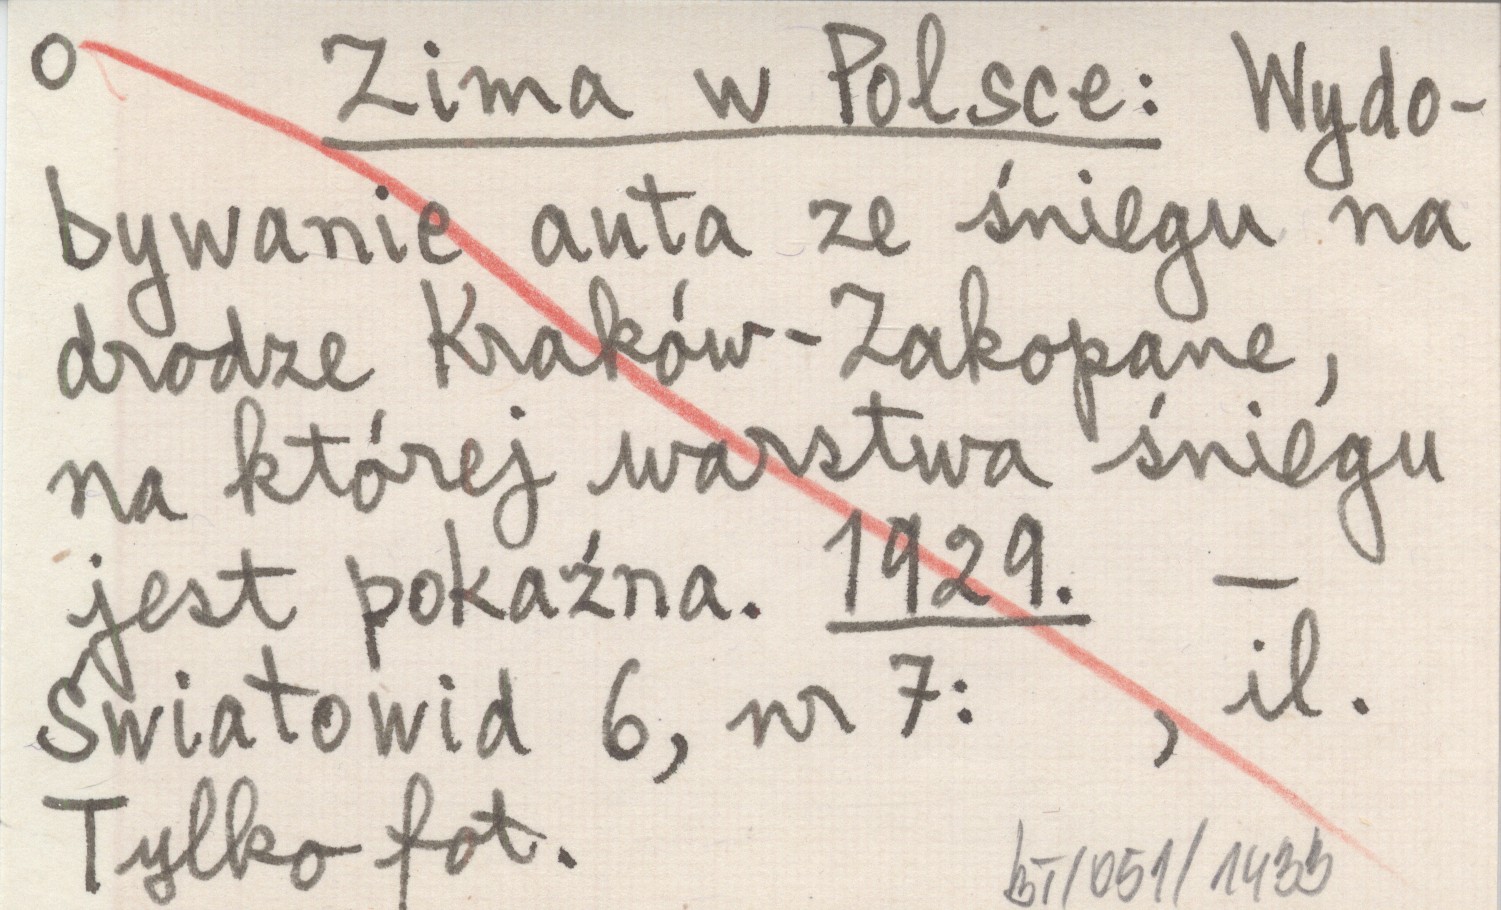 o Zima w Polsce: Wydo-
bywanie auta ze śniegu na
drodze Kraków-Zakopane,
na której warstwa śniegu
jest pokaźna. 1929. —
Światowid 6, nr 7: , il.
Tylko fot.
BT/051/1433